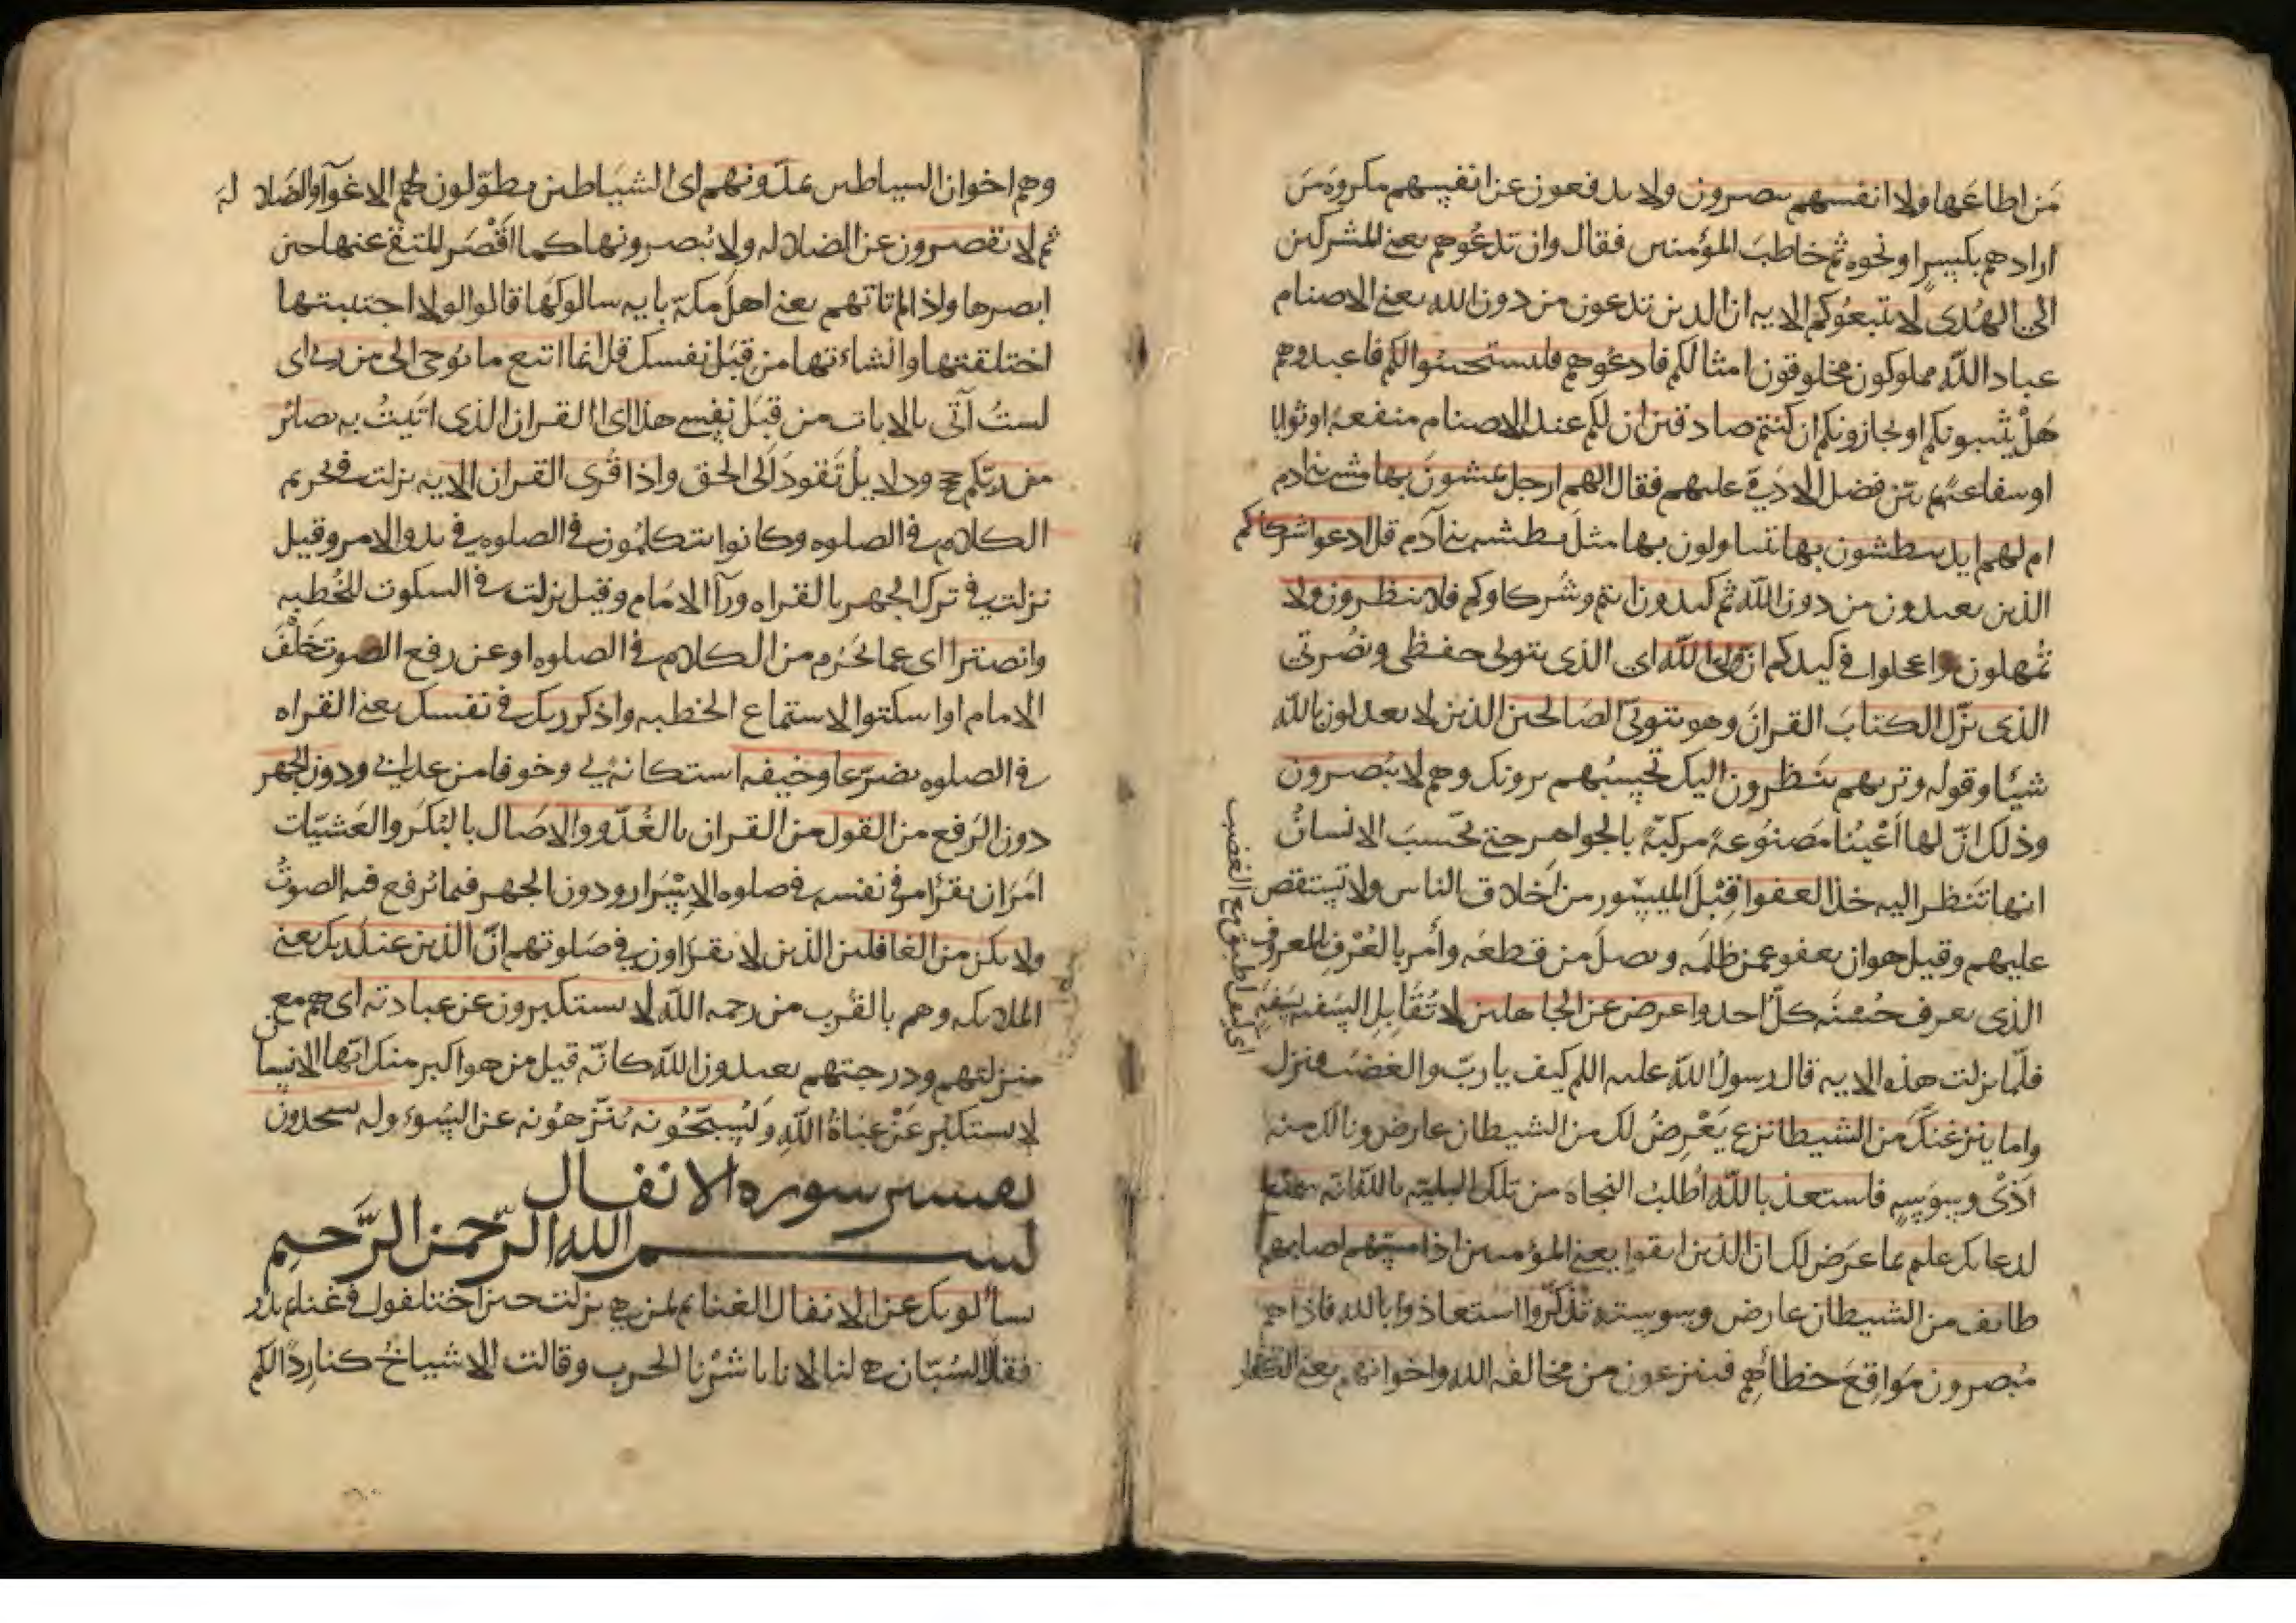 مَن اطاعها ولا انفسهم ينصرون ولا يدفعون عن انفسهم مكروه مَن
ارادهم بكسرٍ او نحوه ثم خاطبَ المؤمنين فقال وان تدعُوهم يعني المشركين
الى الهُدى لا تتبعُوكم الايه ان الذين تدعون من دون الله يعني الاصنام
عباد الله مملوكون مخلوقون امثالكم فادعُوهم فليستجيبُوا لكم فاعبدوهم
هَلْ يثيبونكم او يجازونكم ان كنتم صادقين ان لكم عند الاصنام منفعةً او ثوابا
او شفاعة ثم بيّن فضل الادَمي عليهم فقال الهم ارجل يمشون بها مشي بني ادم
ام لهم ايد يبطشون بها يتناولون بها مثلَ بطش بني آدم قل ادعوا شركاكم
الذين يعبدون من دون الله ثم كيدون انتم وشُركاوكم فلا تنظرون ولا
تُمهلون واعجلوا في كيدكم ان وليّ الله اي الذي يتولى حفظي ونُصْرتي
الذي نزّل الكتابَ القرانَ وهو يتولى الصَالحين الذين لا يعدلون بالله
شيئا وقوله وتريهم يَنظرون اليك تحسِبُهم يرونك وهم لا يُبْصرون
وذلك انّ لها اَعْيُنا مَصنُوعةً مركبّةً بالجواهر حتى يحْسبَ الانسانُ
انها تَنظر اليه خذ العفوا قِبْلَ الميسُور من اخلاق الناس ولا تستقص
عليهم وقيل هو ان يعفو عمن ظلمَه ويصلَ من قطعَه وأمر بالعُرْفِ المعروف
الذي يعرف حُسْنَه كلّ احد واعرض عن الجاهلين لا تُقَابِلِ السَفيه بسَفهِه
فلّما نزلت هذه الايه قال رسولُ الله عليه السلم كيف يا ربّ والغضبُ فنزل
واما ينزغنكَ من الشيطان نزغ يَعْرِضُ لك من الشيطان عارض ونالك منه
اَذىً ووسوَسةٍ فاستعذ بالله اُطلب النجاة من تلك البلية بالله انه سميع
لدعايك عليم بما عرَض لك ان الذين اتقوا يعني المؤمنين اذا مسّهم اصابهم
طايف من الشيطان عارض ووسوسته تذكّروا استعاذوا بالله فاذا هم
مُبصرون مَواقعَ خطائهم فينزعون من مخالفة الله واخوانهم يعني الكفار
اي كيف اطيق مع الغضب
وهم اخوان الشياطين يمدّونهم اي الشياطين يطوّلون لهم الاغوآ والضَلالة
ثم لا يقصرون عن الضلاله ولا يُبصرونها كما اَقْصَر المتقي عنها حين
ابصرها واذا لم تاتهم يعني اهلَ مكة بايه سالوكَها قالوا لولا اجتبيتها
اختلقتها وانشاءتها من قبَل نفسك قل انما اتبع ما يُوحى الي من ربي اي
لستُ آتي بالايات من قبَل نفسي هذا اي القران الذي اتَيتُ به بصائر
من ربّكم حجج ودلايلُ تَقود اَلى الحق واذا قُرى القران الايه نزلت في تحريم
الكلام في الصلوه وكانوا يتكلمون في الصلوه في بدو الامر وقيل
نزلت في ترك الجهر بالقراه ورآا الامام وقيل نزلت في السكوت للخُطبه
وانصتوا اي عما يحَرم من الكلام في الصلوه او عن رفع الصوت خَلْفَ
الامام او اسكتوا لاستماع الخطبه واذكر ربك في نفسك يعني القراه
في الصلوه تضرّعا وخيفه استكانةً لي وخوفا من عذابي ودون الجهر
دون الرَفع من القول من القران بالغُدُّو والاصَال بالبُكَر والعَشيّات
امَرَ ان يقرُأ في نفسه في صلوه الاِسْرَار ودون الجهر فيما يُرفع فيه الصوتُ
ولا تكن من الغافلين الذين لا يقرَاون في صَلوتهم انّ الذين عند ربك يعني
الملايكه وهم بالقُربِ من رحمه الله لا يستكبرون عن عبادته اي هم مع
منزلتهم ودرجتهم يعبدون الله كانّه قيل من هو اكبر منك ايّها الانسان
لا يستكبر عَنْ عبَادةُ الله وَيُسبّحُونه يُنَزهُونه عن السُوء وله يسجدون
تفسير سوره الانفال
بسم الله الرَّحمن الرَّحيم
يسألونك عن الانفال الغنايم لمن هي نزلت حين اختلفوا في غنايم بدر
فقال الشُبّان هي لنا لانا باشَرْنا الحرب وقالت الاشياخُ كنا رِدًا لكم